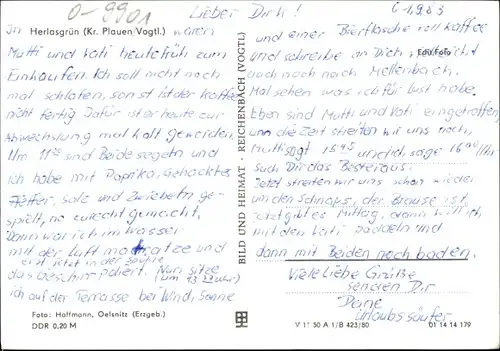 0-9901
Lieber Dirk!
6.1983
In
Herlasgrün (Kr. Plauen/Vogtl.)
waren
Mutti und Vati heute früh zum
Einkaufen. Ich soll nicht noch
mal schlafen, sonst ist der Kaffee
nicht fertig Dafür ist er heute zur
Abwechslung mal kalt geworden.
Um 11 sind Beide segeln und
ich habe mit Paprika, Gehacktes,
Pfeffer, Salz und Zwiebeln ge-
spielt, na zurecht gemacht.
Dann war ich im Wasser
mit der Luftmatratze und
erst jetzt in der
das Geschirr poliert. Nun sitze
(um 13 Uhr)
ich auf der Terrasse bei Wind, Sonne
Foto: Hoffmann, Oelsnitz (Erzgeb.)
DDR 0,20 M
BILD UND HEIMAT · REICHENBACH (VOGTL)
und einer Bierflasche voll Kaffee
und schreibe an Dich; vielleicht
Echt Foto
auch noch nach Mellenbach.
Mal sehen was ich für Lust habe.
Eben sind Mutti und Vati eingetroffen,
um die Zeit streiten wir uns noch,
Mutti sagt 15 45 und ich sage 16 00 Uhr
such Dir das Beste raus.
Jetzt streiten wir uns schon wieder
um den Schnaps, der Brause ist.
Jetzt gibt es Mittag, dann will ich
mit den Vati paddeln und
dann mit Beiden noch baden.
Viele liebe Grüße
senden Dir
Deine
Urlaubssäufer
V 11 50 A 1/B 423/80
01 14 14 179